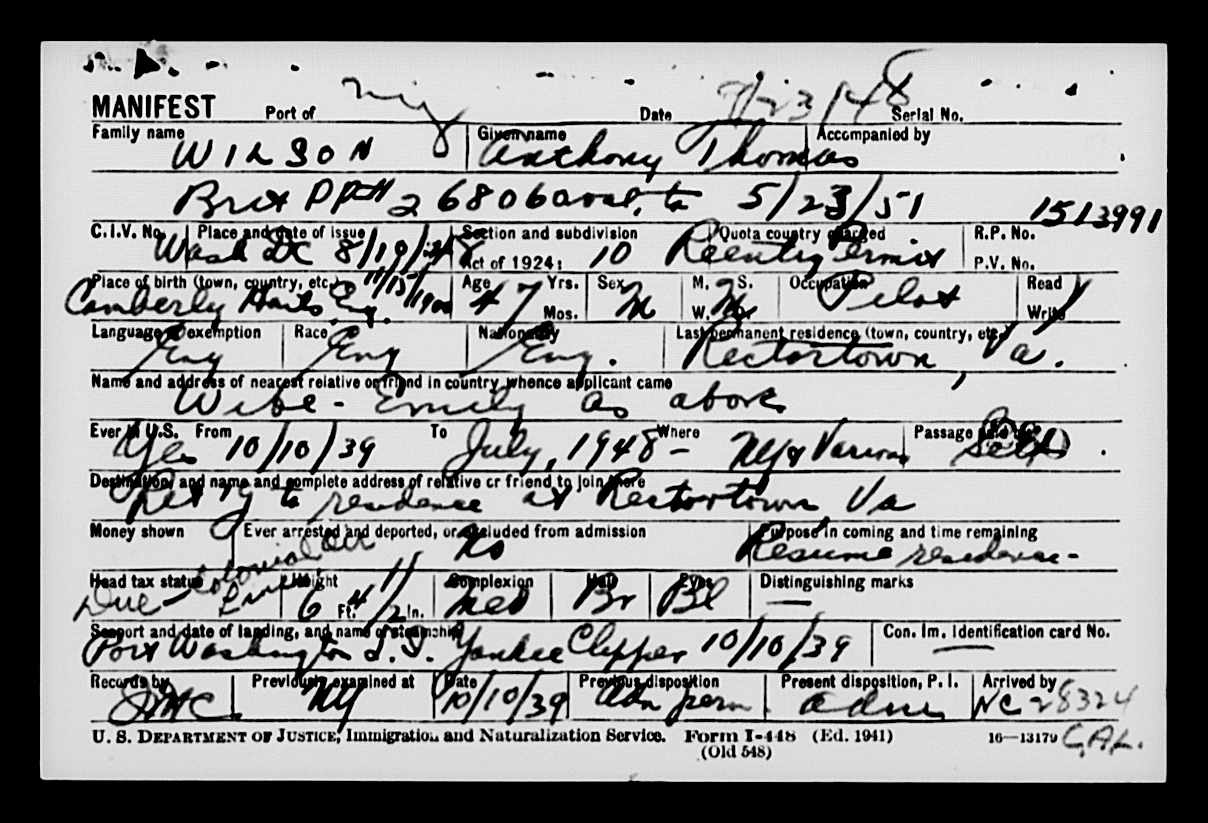 MANIFEST Port of NY Date 7/23/48 Serial No.
Family name Given name Accompanied by
WILSON Anthony Thomas
Brit PP# 26806 to 5/23/51 1513991
C.I.V. No. Place and date of issue Section and subdivision Quota country charged R.P. No.
Wash DC 8/19/ Act of 1924; 10 Reentry Permit P.V. No.
Place of birth (town, country, etc.) 11/15/1900 Age Yrs. Sex M. S. Occupation Read
Camberly Hants Eng. 47 Mos. M W. Pilot Write
Language or exemption Race Nationality Last permanent residence (town, country, etc.)
Eng Eng Eng. Rectortown, Va.
Name and address of nearest relative or friend in country whence applicant came
Wife - Emily as above
Ever in U.S. From To Where Passage paid by
Yes 10/10/39 July, 1948 - NY & Various Self
Destination, and name and complete address of relative or friend to join there
Ret'g to residence at Rectortown, Va
Money shown Ever arrested and deported, or excluded from admission Purpose in coming and time remaining
No Resume residence -
Head tax status Height Complexion Hair Eyes Distinguishing marks
Due - Colonial Air Lines 6 Ft. 4 1/2 In. Med Br Bl —
Seaport and date of landing, and name of steamship Con. Im. Identification card No.
Port Washington L.I. Yankee Clipper 10/10/39 —
Records by Previously examined at Date Previous disposition Present disposition, P. I. Arrived by
NY 10/10/39 adm perm adm NC 28324
U. S. DEPARTMENT OF JUSTICE, Immigration and Naturalization Service. Form I-448 (Ed. 1941) 16—13179 CAL.
(Old 548)